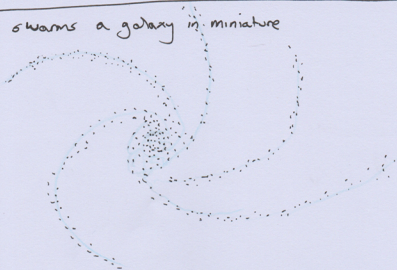 swarms a galaxy in miniature